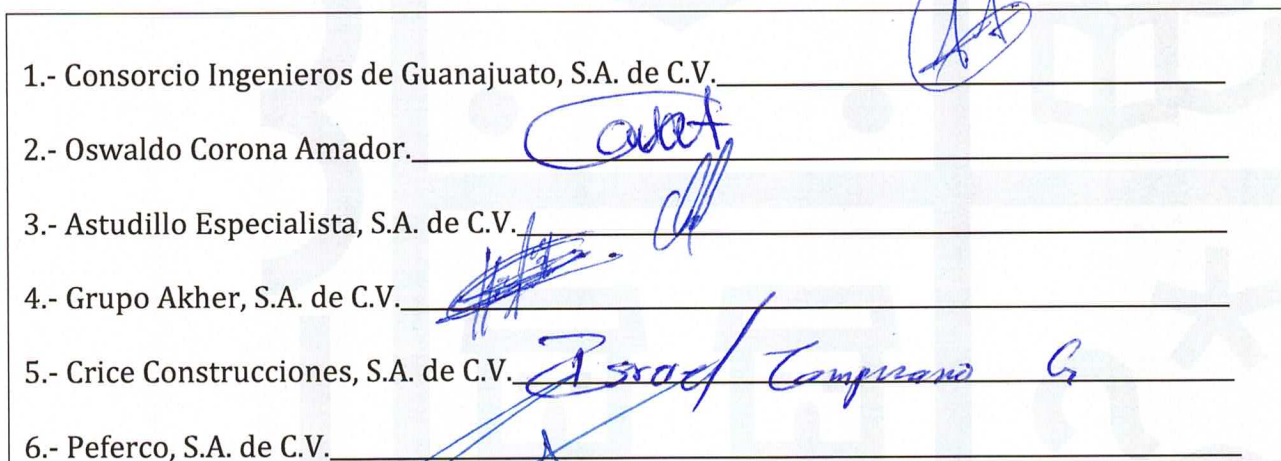 1.- Consorcio Ingenieros de Guanajuato, S.A. de C.V.
2.- Oswaldo Corona Amador.
3.- Astudillo Especialista, S.A. de C.V.
4.- Grupo Akher, S.A. de C.V.
5.- Crice Construcciones, S.A. de C.V. Israel Campuzano G
6.- Peferco, S.A. de C.V.